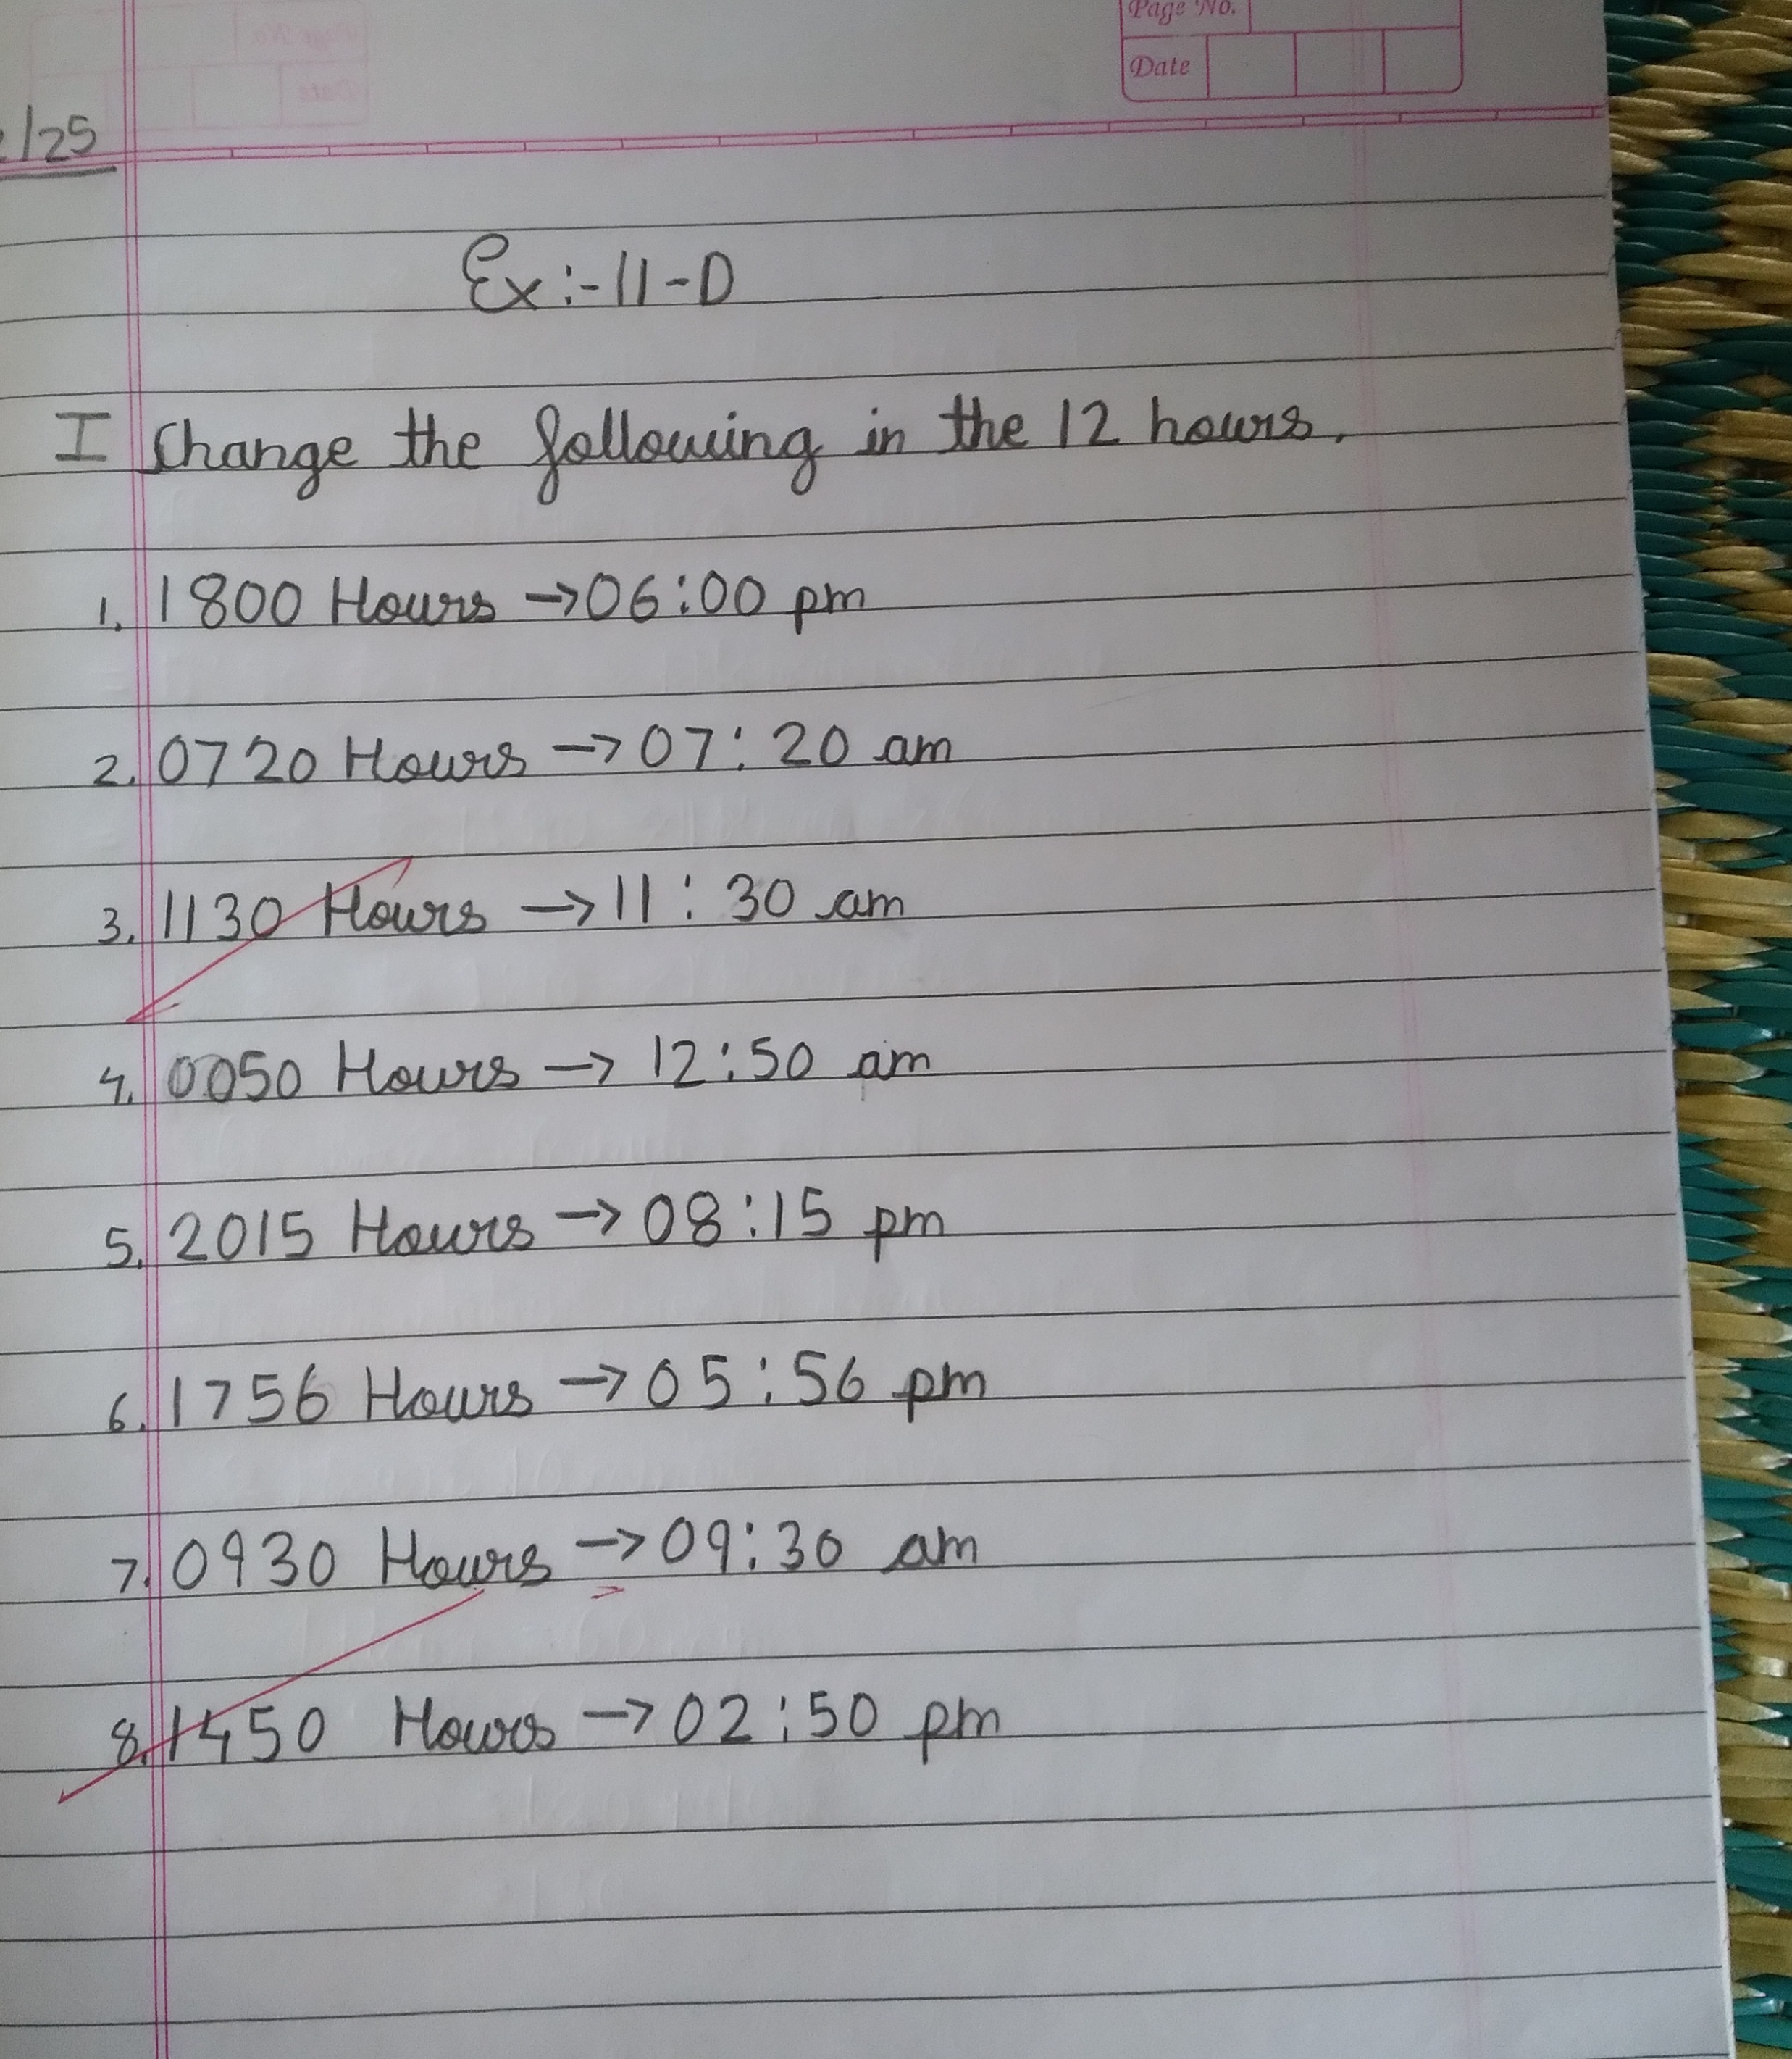 Page No.
Date
/25
Ex:-11-D
I Change the following in the 12 hours.
1. 1800 Hours →06:00 pm
2. 0720 Hours →07:20 am
3. 1130 Hours →11:30 am
4. 0050 Hours → 12:50 am
5. 2015 Hours →08:15 pm
6. 1756 Hours →05:56 pm
7. 0930 Hours →09:30 am
8. 1450 Hours →02:50 pm